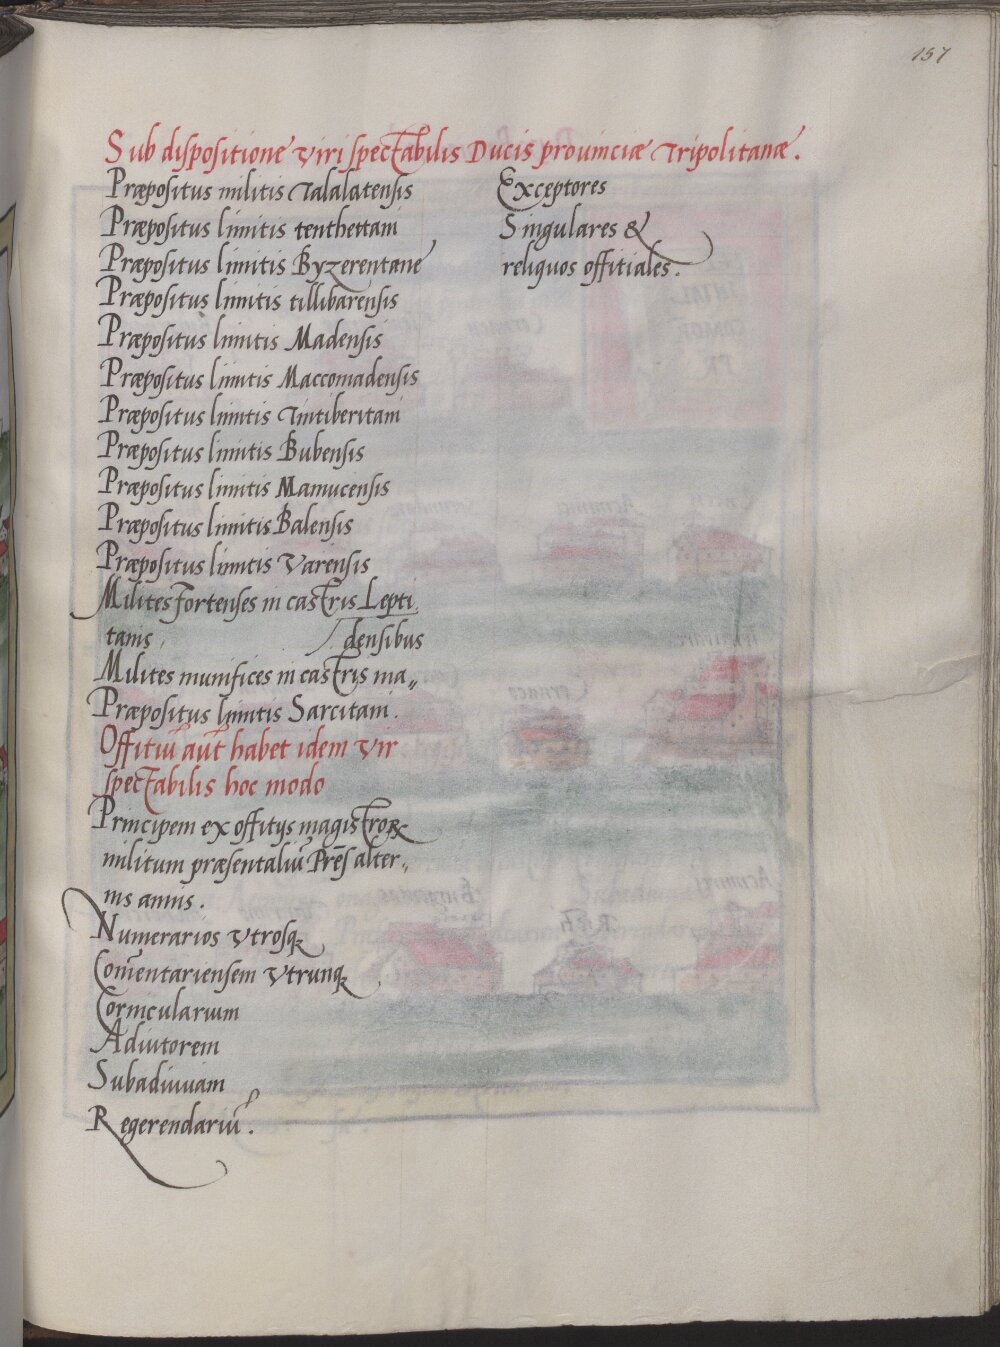 157
Sub dispositione viri spectabilis Ducis prouinciæ Tripolitanæ.
Præpositus militis Talalatensis
Præpositus limitis tenthettani
Præpositus limitis Byzerentane
Præpositus limitis tillibarensis
Præpositus limitis Madensis
Præpositus limitis Maccomadensis
Præpositus limitis Tintiberitani
Præpositus limitis Bubensis
Præpositus limitis Mamucensis
Præpositus limitis Balensis
Præpositus limitis Varensis
Milites fortenses in castris Lepti
tanis densibus
Milites munifices in castris ma„
Præpositus limitis Sarcitani.
Offitiũ aũt habet idem vir
spectabilis hoc modo
Principem ex offitijs magistroꝝ
militum præsentaliũ Prẽs alter„
nis annis.
Numerarios vtrosq
Com̃entariensem vtrunq
Cornicularium
Adiutorem
Subadiuuam
Regerendariũ.
Exceptores
Singulares &
reliquos offitiales.